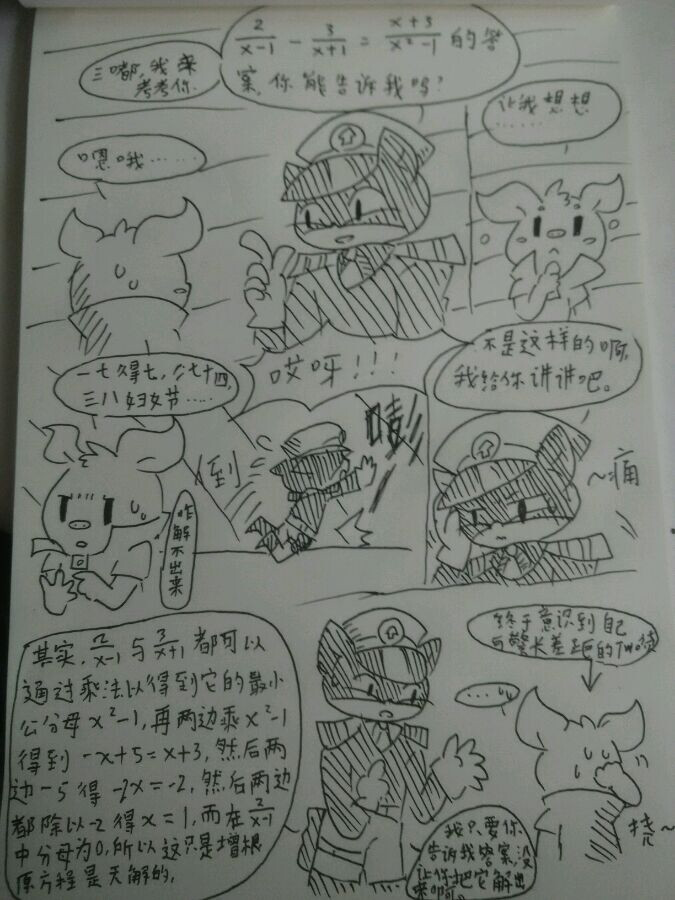 2/(x-1) - 3/(x+1) = (x+3)/(x²-1) 的答
案,你能告诉我吗?
三嘟,我来
考考你.
让我想想
……
嗯哦……
一七得七,二七十四,
三八妇女节……
哎呀!!!
不是这样的啊,
我给你讲讲吧。
(倒
~痛
咋
解
不
出
来
其实, 2/(x-1) 与 3/(x+1) 都可以
通过乘法以得到它的最小
公分母x²-1,再两边乘x²-1
得到 -x+5=x+3,然后两
边-5得-2x=-2,然后两边
都除以-2得x=1,而在 2/(x-1)
中分母为0,所以这只是增根
原方程是无解的.
终于意识到自己
与警长差距的
....
我只要你
告诉我答案,没
让你把它解出
来啊。
挠~